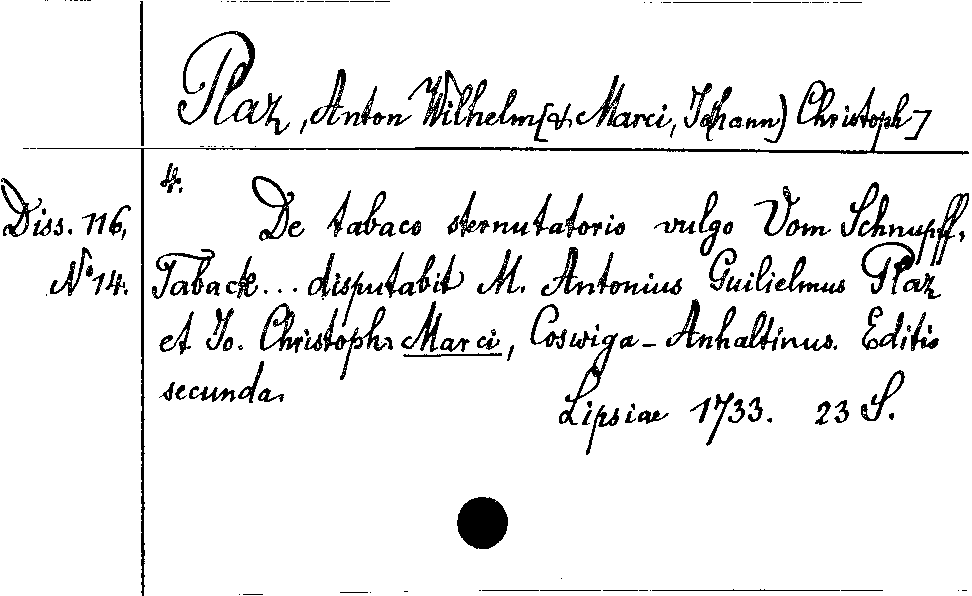 Plaz, Anton Wilhelm [& Marci, Johann) Christoph]
4.
Diss. 116,
N° 14.
De tabaco sternutatorio vulgo Vom Schnupff-
Taback... disputabit M. Antonius Guilielmus Plaz
et Jo. Christoph. Marci, Coswiga-Anhaltinus. Editio
secunda.
Lipsiae 1733. 23 S.